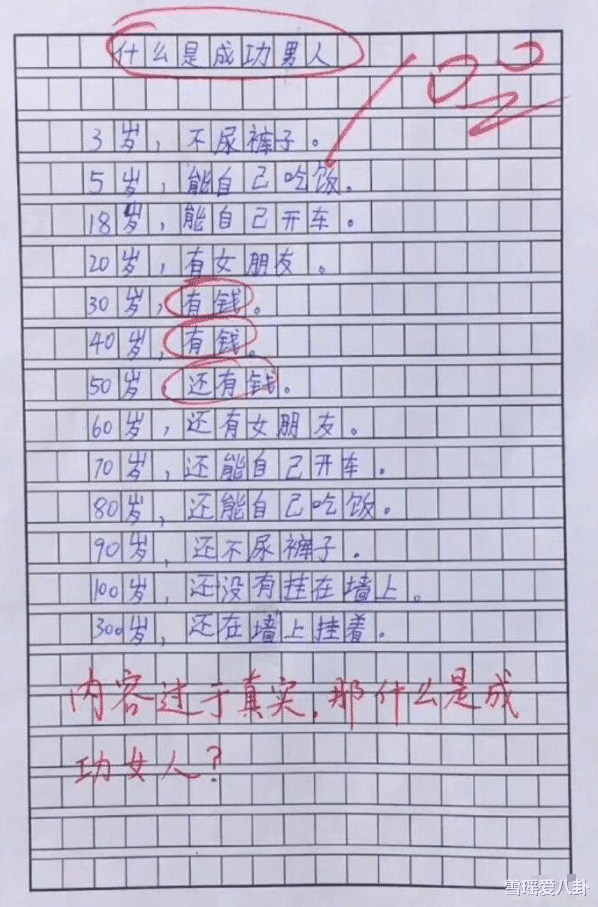 什么是成功男人
100
3岁，不尿裤子。
5岁，能自己吃饭。
18岁，能自己开车。
20岁，有女朋友。
30岁，有钱。
40岁，有钱。
50岁，还有钱。
60岁，还有女朋友。
70岁，还能自己开车。
80岁，还能自己吃饭。
90岁，还不尿裤子。
100岁，还没有挂在墙上。
300岁，还在墙上挂着.
内容过于真实，那什么是成
功女人？
雪瑶爱八卦